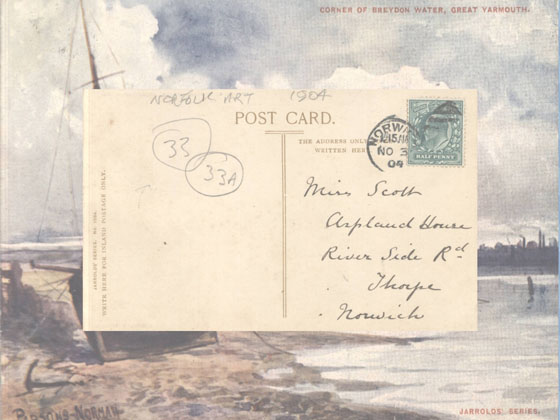 CORNER OF BREYDON WATER, GREAT YARMOUTH.
NORFOLK ART 1904
33
33A
POST CARD.
THE ADDRESS ONLY
WRITTEN HER
NORWI
NO 3
04
HALF PENNY
JARROLDS' SERIES, No.
WRITE HERE FOR INLAND POSTAGE ONLY.
Miss Scott
Aspland House
River Side Rd
Thorpe
Norwich
PARSONS-NORMAN
JARROLDS' SERIES.